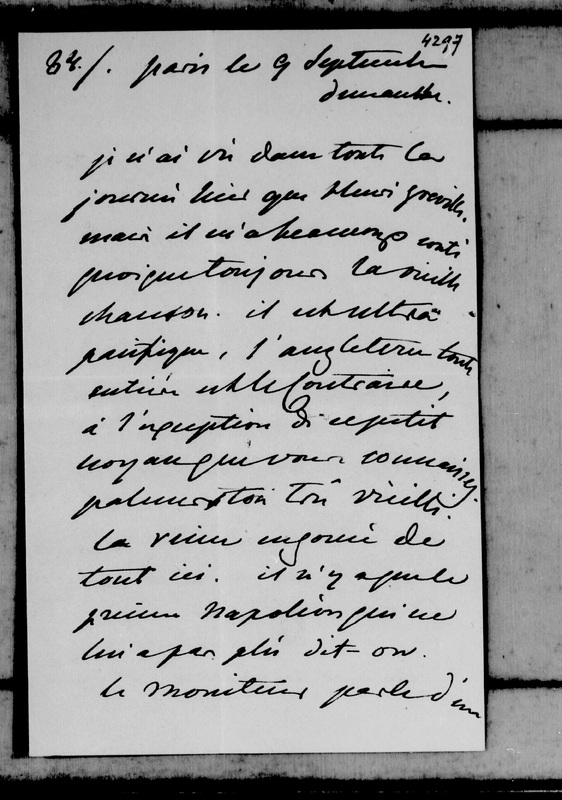 4297
83./. paris le 9 Septembre
dimanche.
je n'ai vu dans toute la
journée hier que Henri Greville.
mais il m'a beaucoup conté
quoique toujours la vieille
chanson. il est ultra
pacifique, l'angleterre toute
entière est le Contraire,
à l'exception de ce petit
noyau que vous connaissez.
palmerston très vieilli.
la reine engouée de
tout ici. il n'y a que le
prince Napoléon qui ne
lui a pas plu dit-on.
le moniteur parle d'un